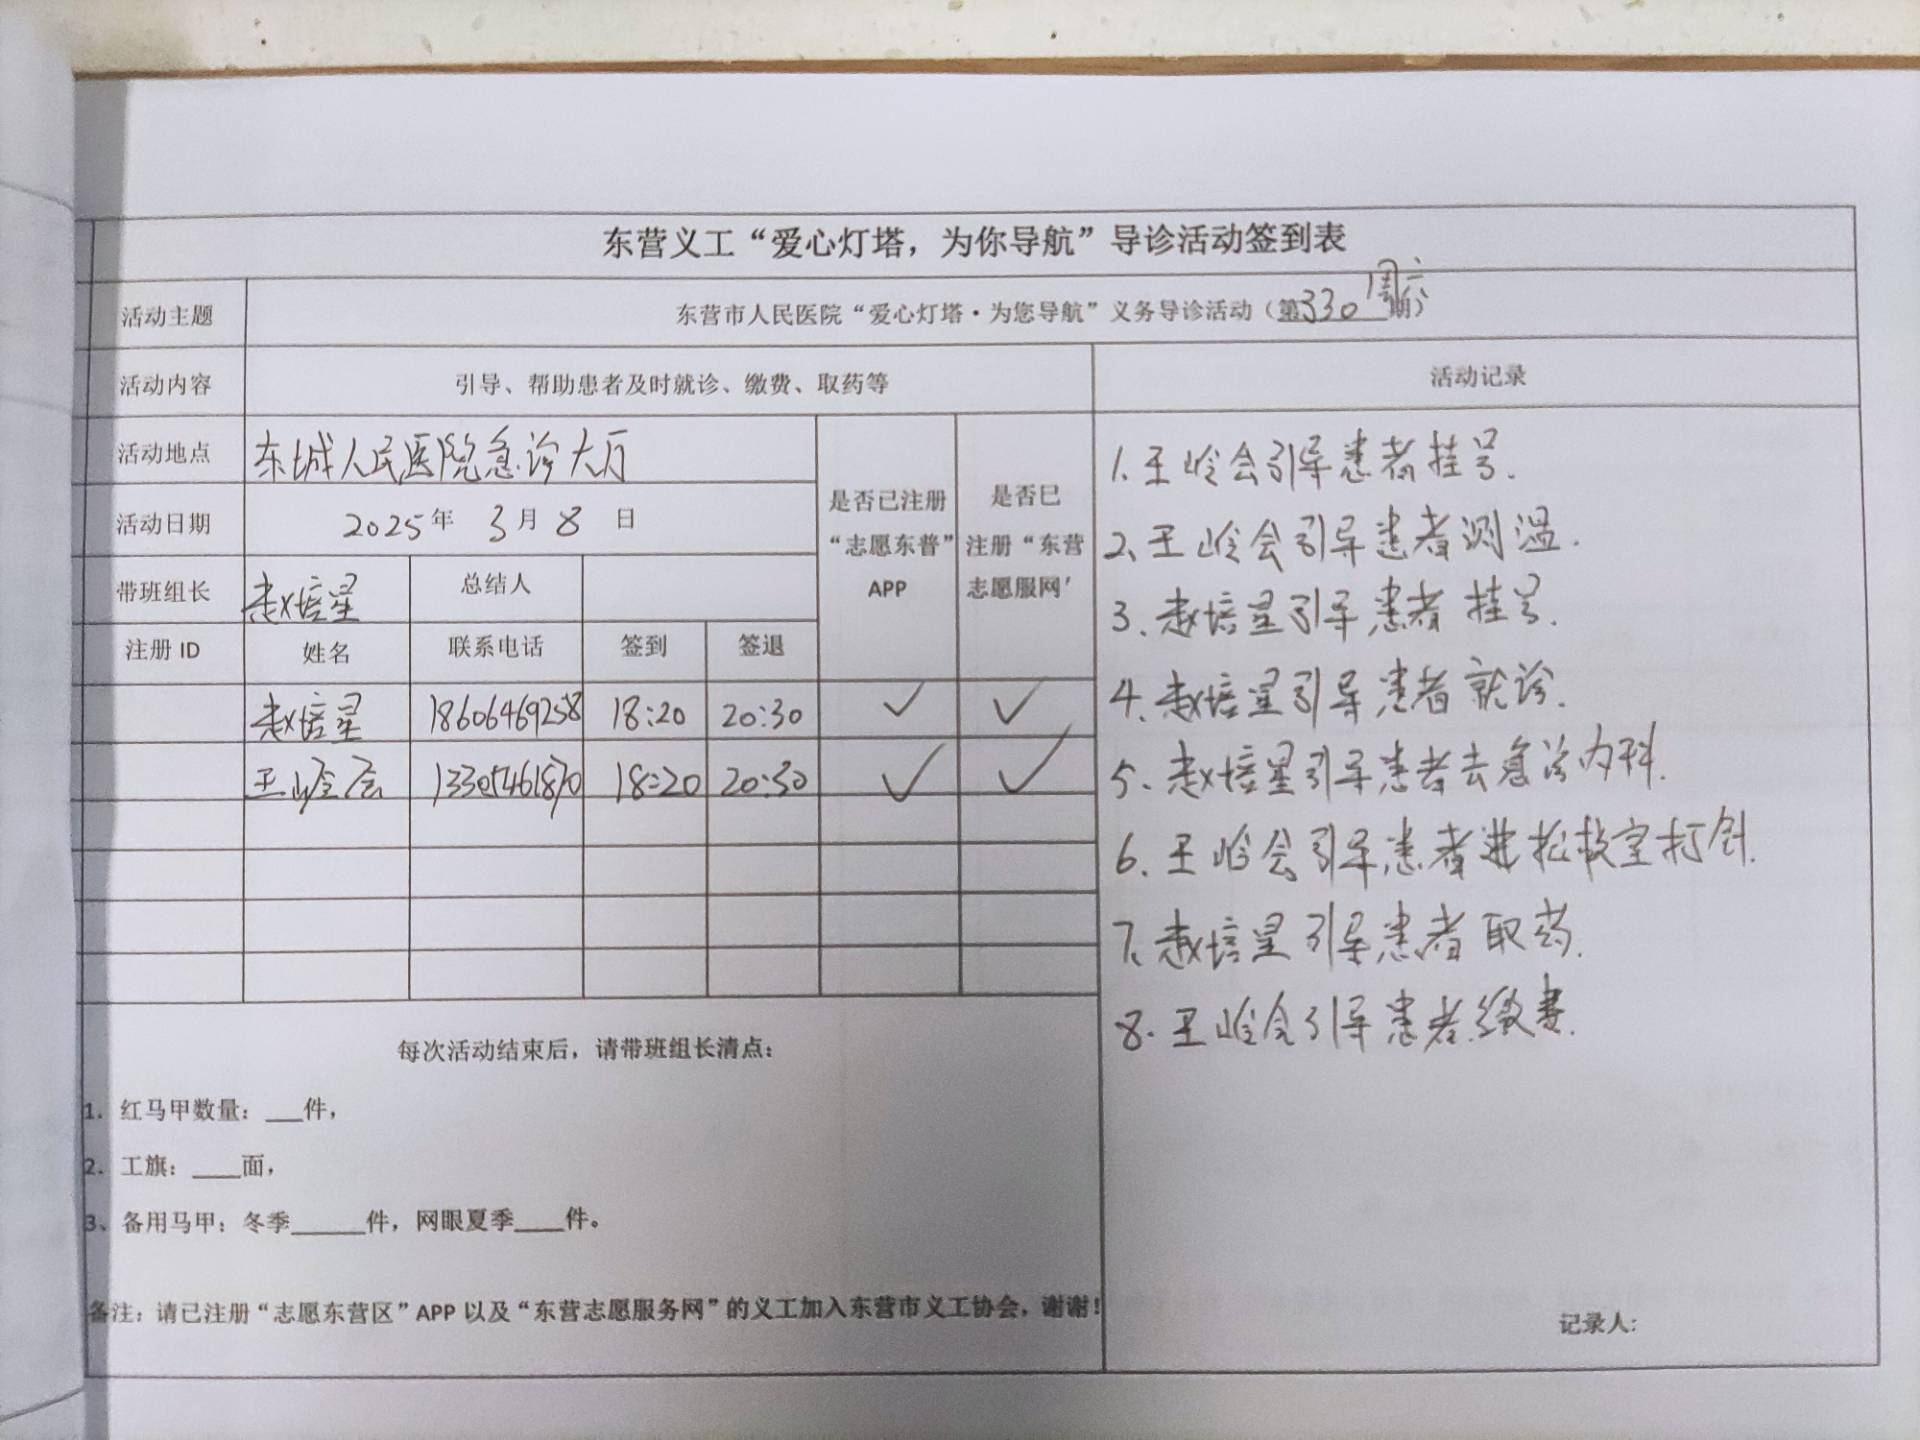 东营义工“爱心灯塔，为你导航”导诊活动签到表
活动主题 东营市人民医院“爱心灯塔·为您导航”义务导诊活动（第330期）周六
活动内容 引导、帮助患者及时就诊、缴费、取药等 活动记录
活动地点 东城人民医院急诊大厅
活动日期 2025年 3月 8 日
是否已注册“志愿东普”APP
是否已注册“东营志愿服网’
带班组长 赵培星 总结人
注册 ID 姓名 联系电话 签到 签退
赵培星 18606469258 18:20 20:30 ✓ ✓
王岭会 13305461870 18:20 20:30 ✓ ✓
1.王岭会引导患者挂号.
2、王岭会引导患者测温.
3.赵培星引导患者挂号.
4、赵培星引导患者就诊.
5、赵培星引导患者去急诊内科.
6.王岭会引导患者进抢救室打针.
7、赵培星引导患者取药.
8.王岭会引导患者缴费.
每次活动结束后，请带班组长清点：
1. 红马甲数量：___件，
2. 工旗：____面，
3、备用马甲：冬季______件，网眼夏季____件。
备注：请已注册“志愿东营区”APP 以及“东营志愿服务网”的义工加入东营市义工协会，谢谢！
记录人: